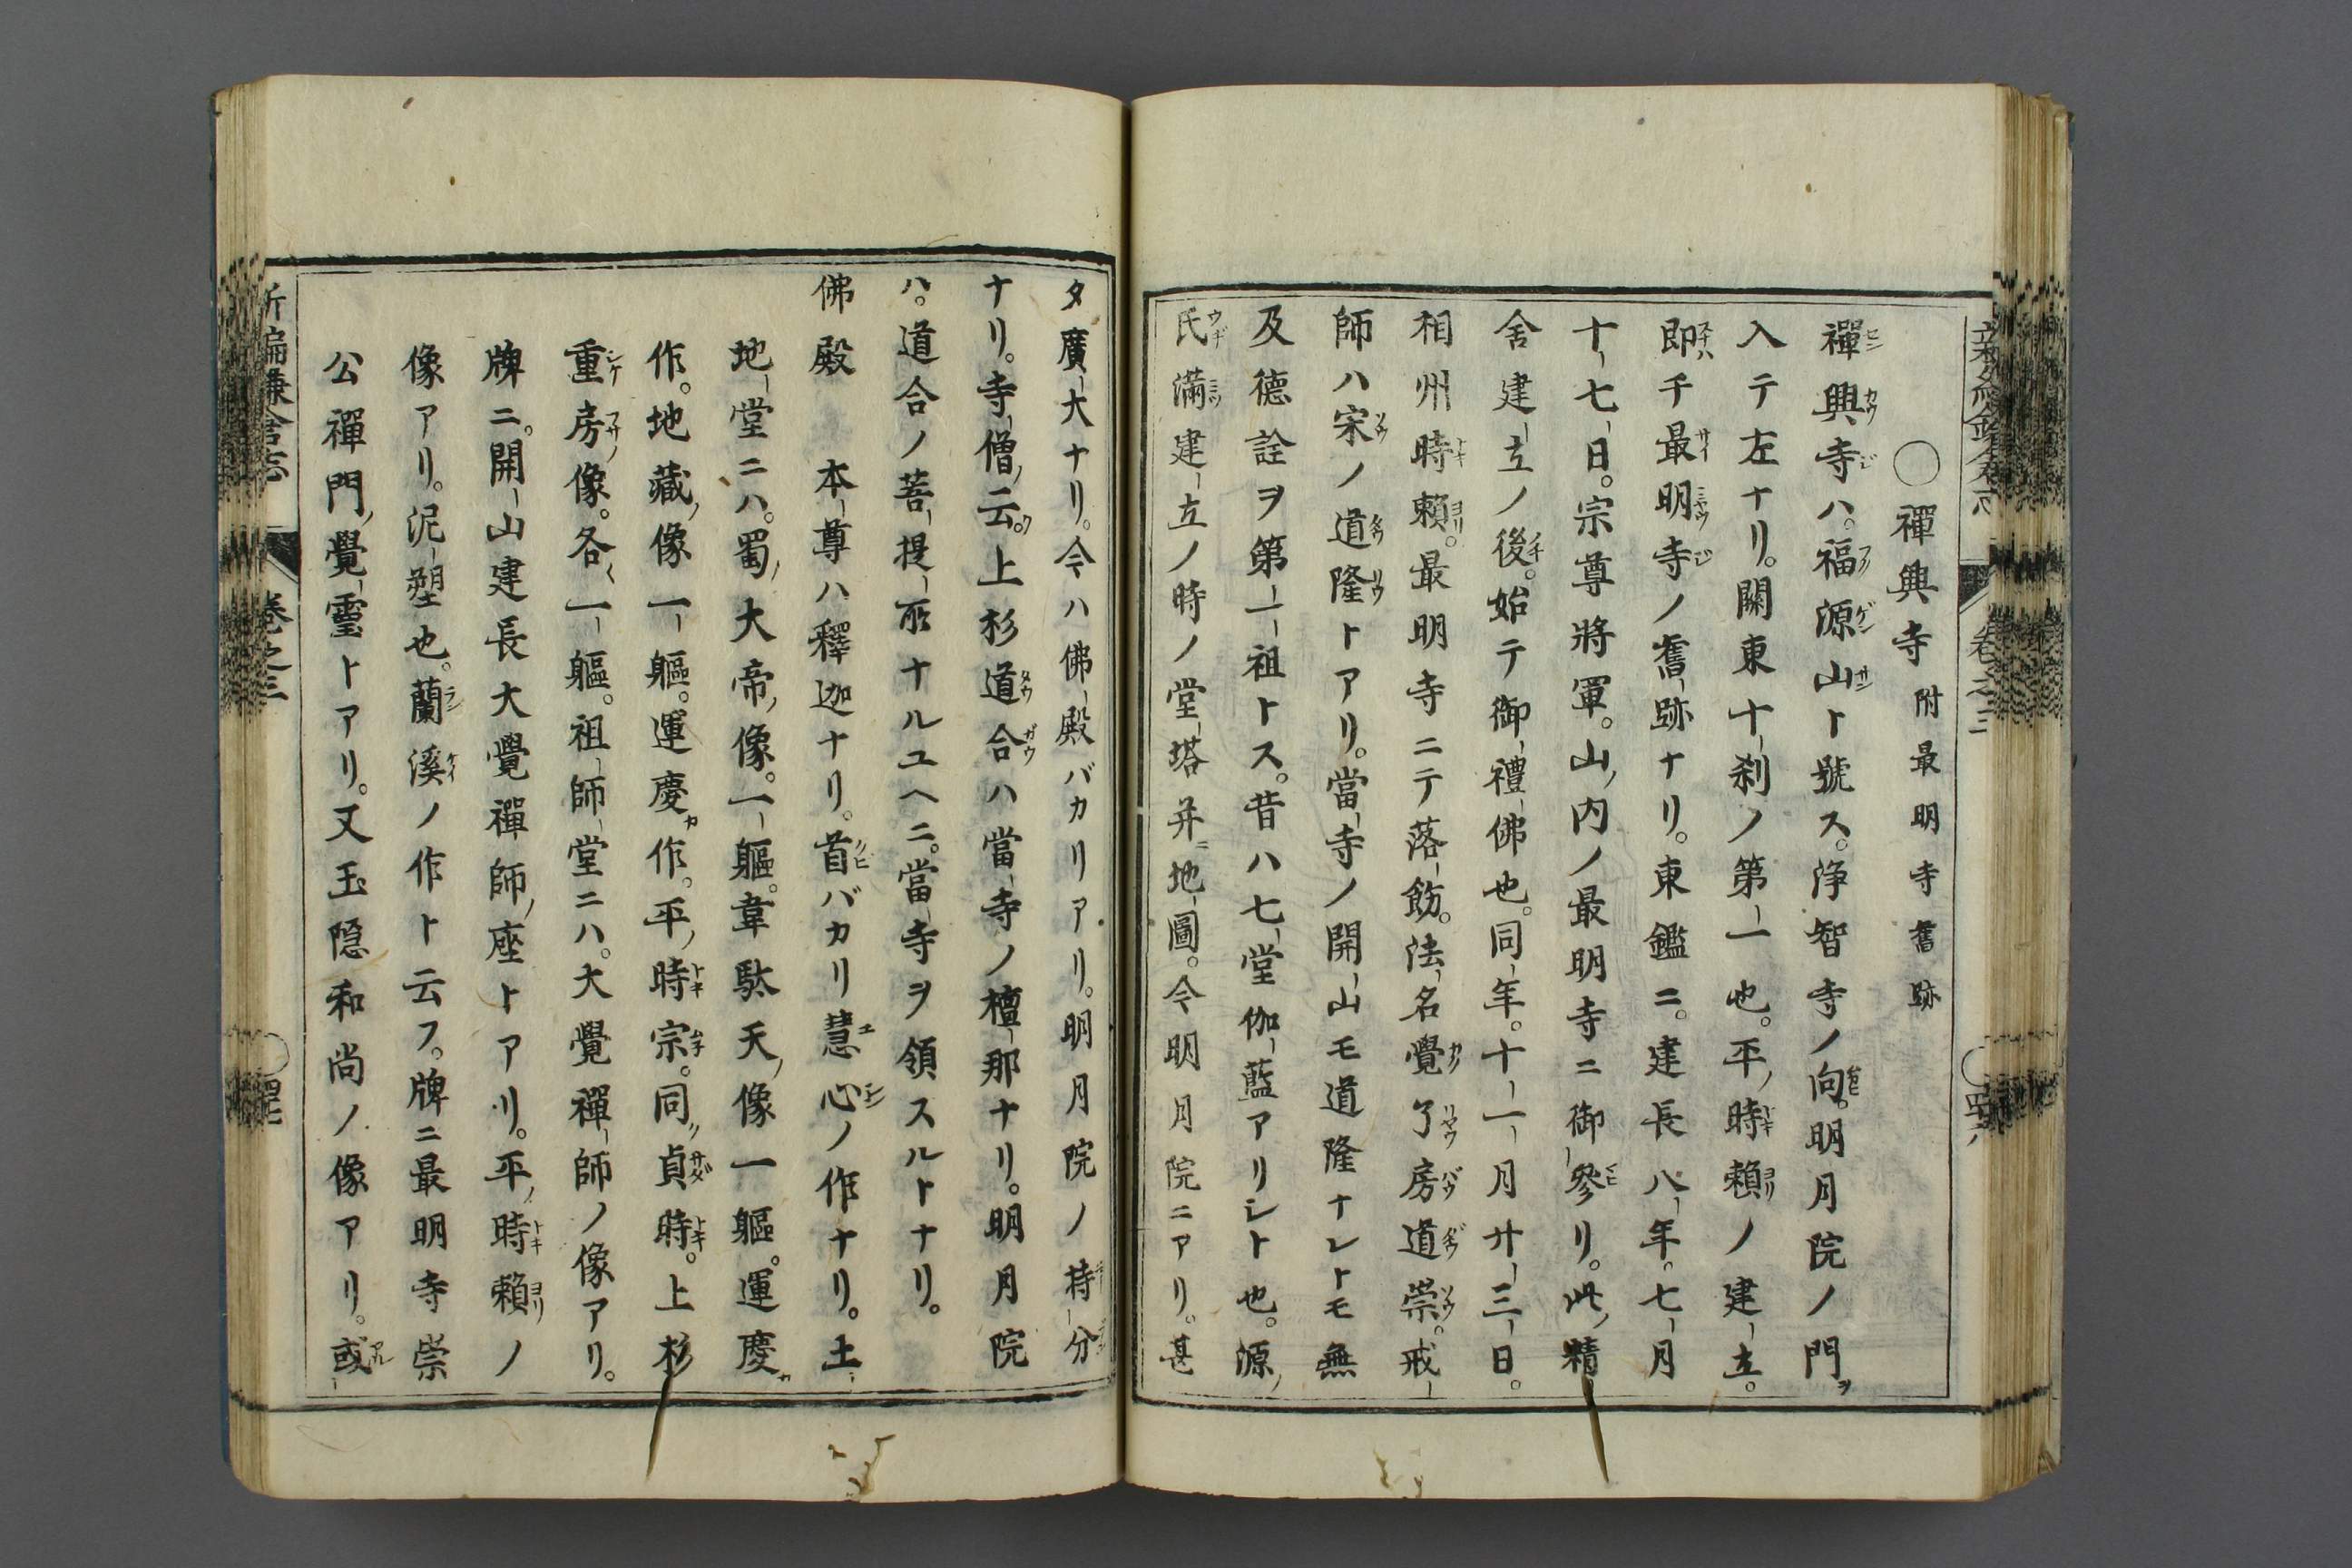 ○禪興寺 附最明寺舊跡
禪興寺ハ。福源山ト號ス。淨智寺ノ向。明月院ノ門ヲ
入テ左ナリ。關東十刹ノ第一也。平ノ時賴ノ建立。
即チ最明寺ノ舊跡ナリ。東鑑ニ。建長八年。七月
十七日。宗尊將軍。山ノ内ノ最明寺ニ御參リ。此ノ精
舍建立ノ後。始テ御禮佛也。同年。十一月廿三日。
相州時賴。最明寺ニテ落飾。法名覺了房道崇。戒
師ハ宋ノ道隆トアリ。當寺ノ開山モ道隆ナレトモ無
及德詮ヲ第一祖トス。昔ハ七堂伽藍アリシト也。源ノ
氏滿建立ノ時ノ堂塔并ニ地圖。今明月院ニアリ。甚
タ廣大ナリ。今ハ佛殿バカリアリ。明月院ノ持分
ナリ。寺僧ノ云ク。上杉道合ハ當寺ノ檀那ナリ。明月院
ハ。道合ノ菩提所ナルユヘニ。當寺ヲ領スルトナリ。
佛殿 本尊ハ釋迦ナリ。首バカリ慧心ノ作ナリ。土
地堂ニハ。蜀ノ大帝ノ像。一軀。韋駄天ノ像一軀。運慶カ
作。地藏ノ像一軀。運慶カ作。平ノ時宗。同ク貞時。上杉
重房ノ像。各〱一軀。祖師堂ニハ。大覺禪師ノ像アリ。
牌ニ。開山建長大覺禪師ノ座トアリ。平ノ時賴ノ
像アリ。泥塑也。蘭溪ノ作ト云フ。牌ニ最明寺崇
公禪門ノ覺靈トアリ。又玉隠和尚ノ像アリ。或
新編鎌倉志 卷之三